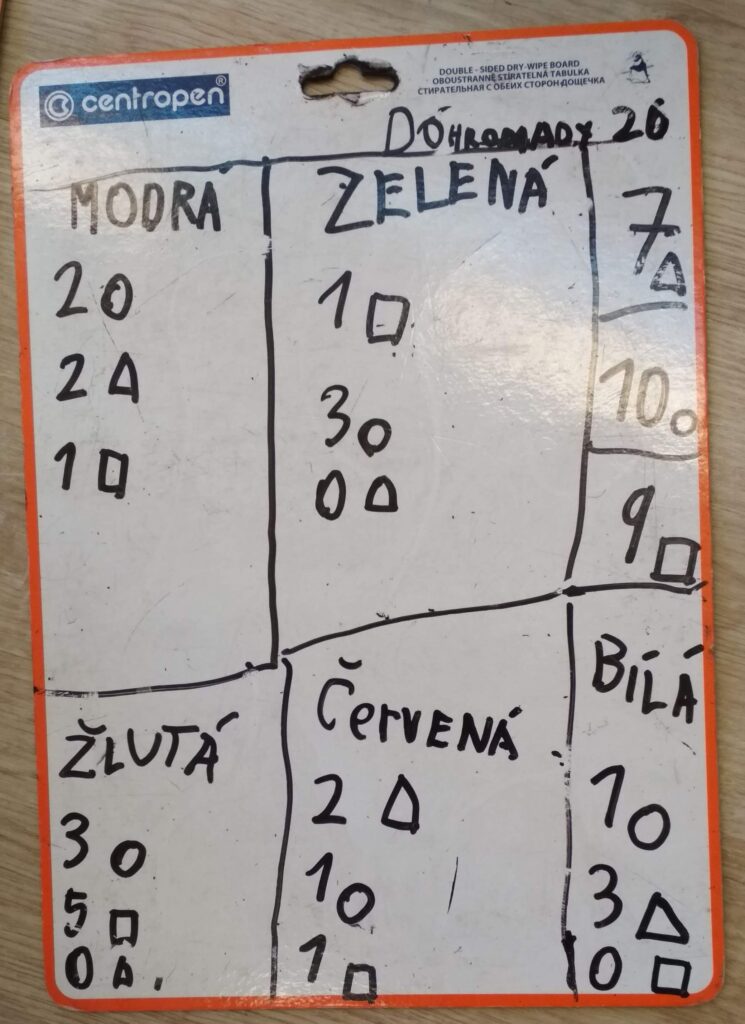 centropen®
DOUBLE - SIDED DRY-WIPE BOARD
OBOUSTRANNĚ STÍRATELNÁ TABULKA
СТИРАТЕЛЬНАЯ С ОБЕИХ СТОРОН ДОЩЕЧКА
DÓHROMADY 26
MODRÁ
2 ○
2 △
1 □
ZELENÁ
1 □
3 ○
0 △
7 △
10 ○
9 □
ŽLUTÁ
3 ○
5 □
0 △.
ČERVENÁ
2 △
1 ○
1 □
BÍLÁ
1 ○
3 △
0 □